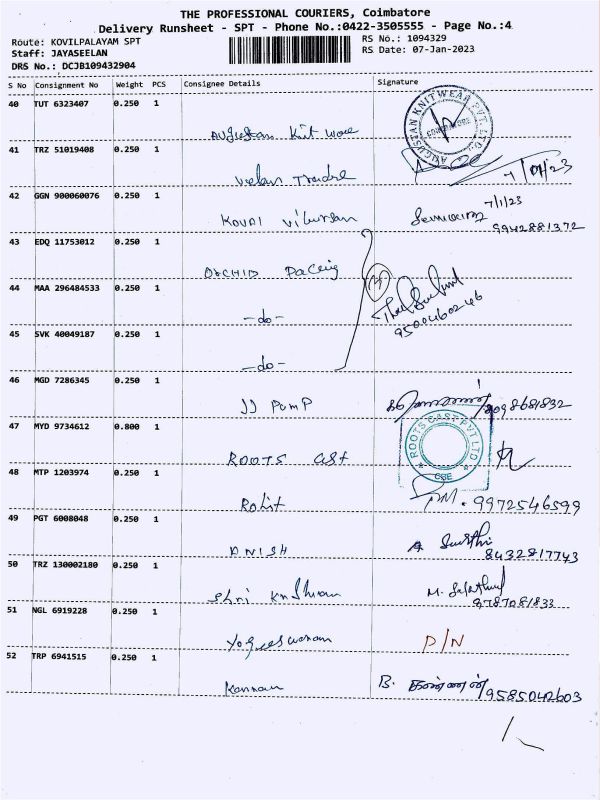 THE PROFESSIONAL COURIERS, Coimbatore
Delivery Runsheet - SPT - Phone No.:0422-3505555 - Page No.:4
Route: KOVILPALAYAM SPT
RS No.: 1094329
Staff: JAYASEELAN
RS Date: 07-Jan-2023
DRS No.: DCJB109432904
S No Consignment No Weight PCS Consignee Details Signature
40 TUT 6323407 0.250 1
Augustan Knit wear
AUGUSTAN KNITWEAR PVT LTD
COIMBATORE
41 TRZ 51019408 0.250 1
Velan Tradre
7/01/23
42 GGN 900060076 0.250 1
KOVAI
7/1/23
9942881372
43 EDQ 11753012 0.250 1
ORCHID Paceing
44 MAA 296484533 0.250 1
-do-
9500460246
45 SVK 40049187 0.250 1
-do-
46 MGD 7286345 0.250 1
JJ PUMP
8098681832
47 MYD 9734612 0.800 1
ROOTS Cast
ROOTS CAST PVT LTD
CBE
48 MTP 1203974 0.250 1
Rohit
9972546599
49 PGT 6008048 0.250 1
ANISH
8432817743
50 TRZ 130002180 0.250 1
Shri
9787081833
51 NGL 6919228 0.250 1
Yogeeswaran
P/N
52 TRP 6941515 0.250 1
Kannan
B. கண்ணன் 9585042603